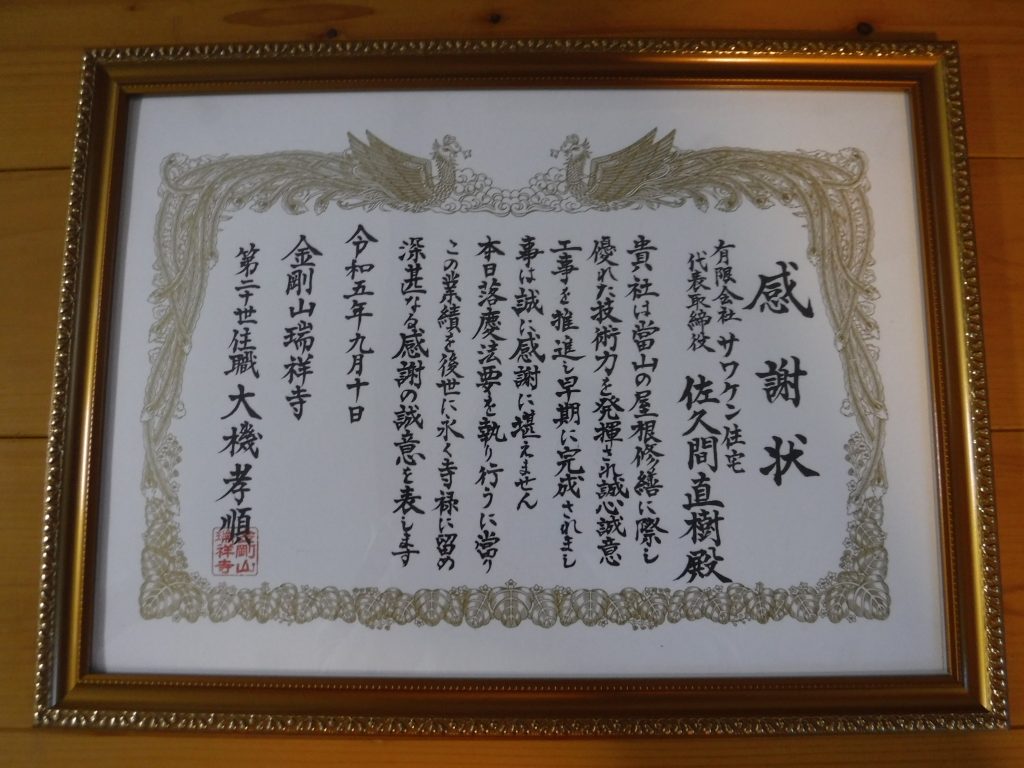 感謝状
有限会社 サワケン住宅
代表取締役 佐久間直樹殿
貴社は當山の屋根修繕に際し
優れた技術力を発揮され誠心誠意
工事を推進し早期に完成されまし
事は誠に感謝に堪えません
本日落慶法要を執り行うに當り
この業績を後世に永く寺禄に留め
深甚なる感謝の誠意を表します
令和五年九月十日
金剛山瑞祥寺
第二十世住職 大機孝順
金剛山
瑞祥寺